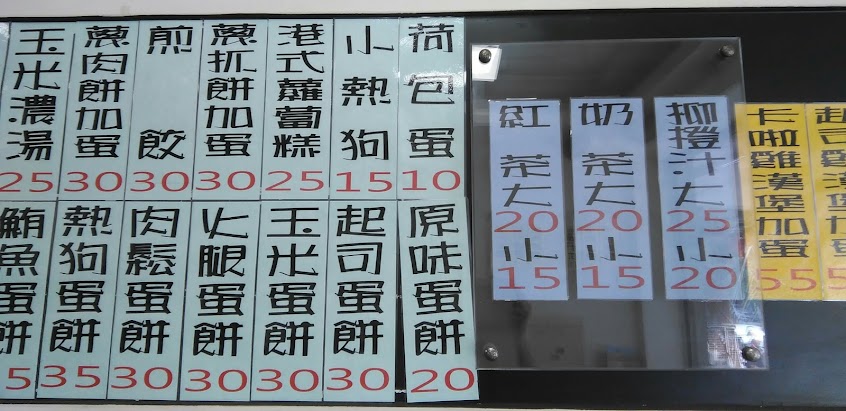 起司雞漢堡加蛋
卡啦雞漢堡加蛋 55
柳橙汁大 25 小 20
奶茶大 20 小 15
紅茶大 20 小 15
荷包蛋 10
小熱狗 15
港式蘿蔔糕 25
蔥抓餅加蛋 30
煎餃 30
蔥肉餅加蛋 30
玉米濃湯 25
原味蛋餅 20
起司蛋餅 30
玉米蛋餅 30
火腿蛋餅 30
肉鬆蛋餅 30
熱狗蛋餅 35
鮪魚蛋餅 5